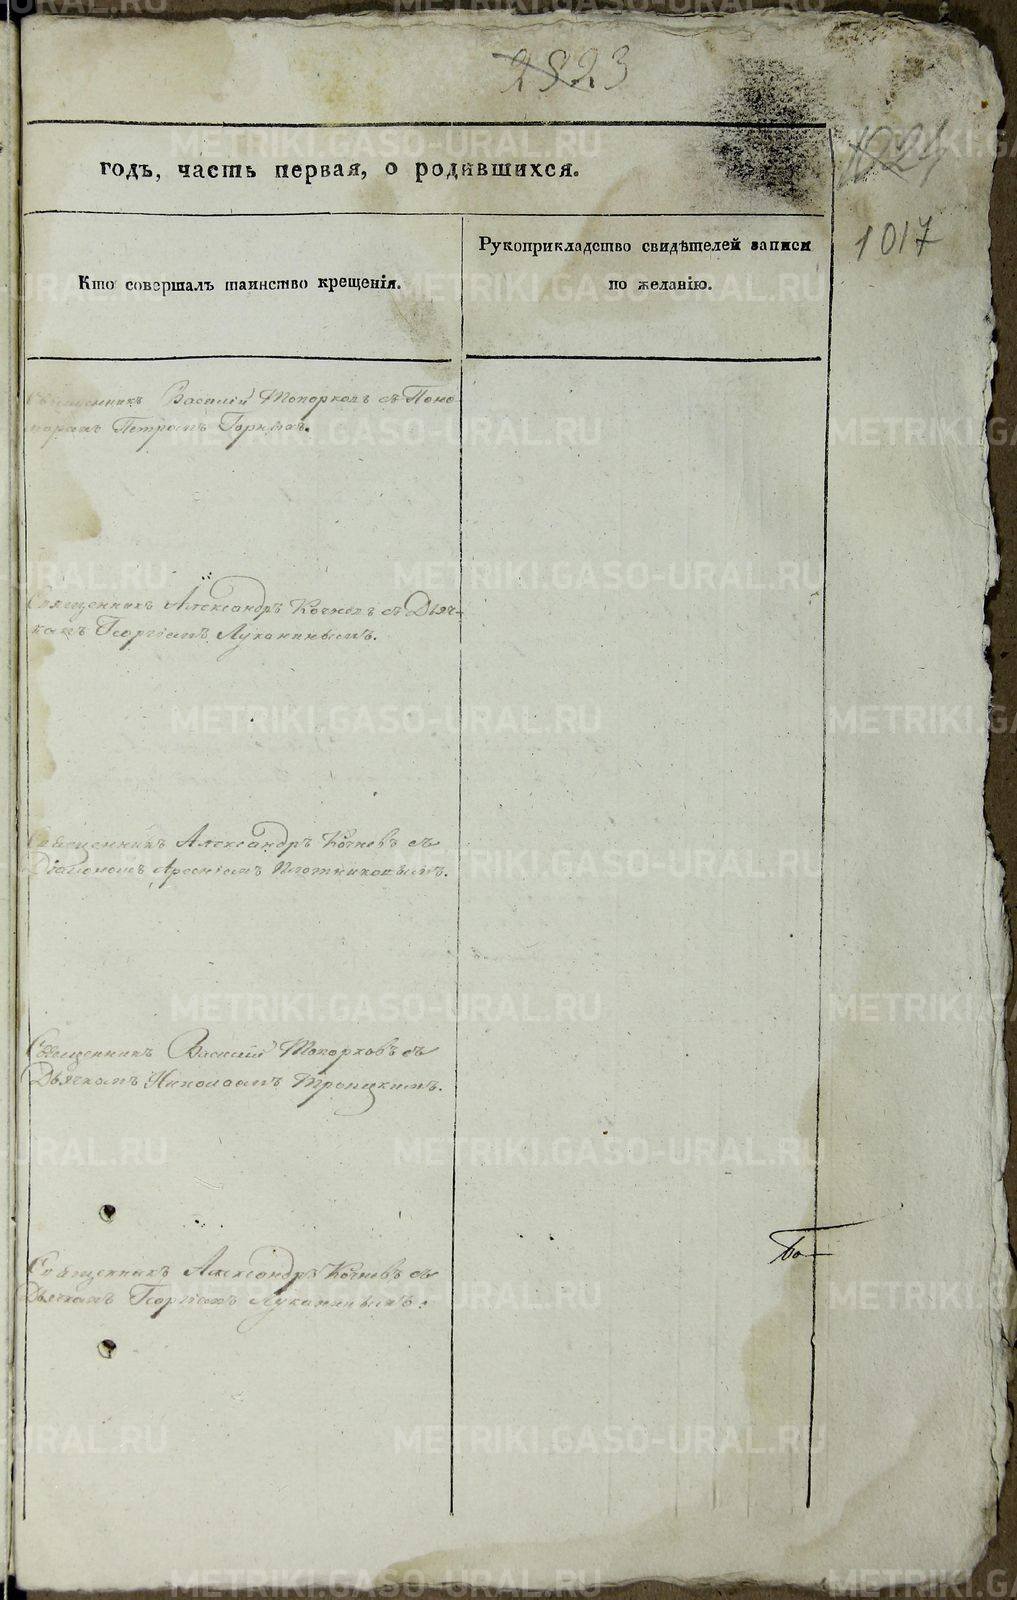 2823
1024
1017
годъ, часть первая, о родившихся.
Кто совершалъ таинство крещенія.
Рукоприкладство свидѣтелей записи
по желанію.
Священникъ Василій Топорковъ съ Поно
маремъ Петромъ
Священникъ Александръ Кочневъ съ Дьяч-
комъ Георгіемъ Луканинымъ.
Священникъ Александръ Кочневъ съ
Діакономъ Арсеніемъ Плотниковымъ.
Священникъ Василій Топорковъ съ
Дьячкомъ Николаемъ Троицкимъ.
Священникъ Александръ Кочневъ съ
Дьячкомъ Георгіемъ Луканинымъ.
METRIKI.GASO-URAL.RU